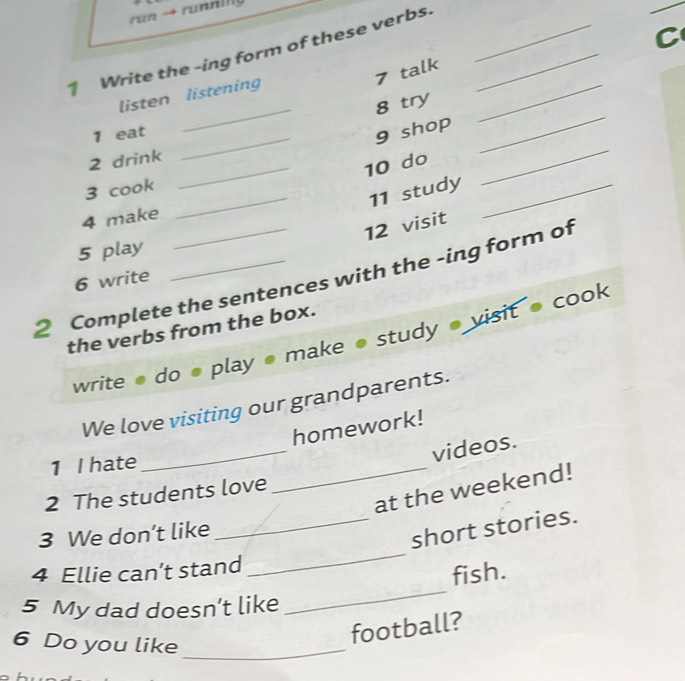 run → running
1 Write the -ing form of these verbs.
listen listening
1 eat
2 drink
3 cook
4 make
5 play
6 write
7 talk
8 try
9 shop
10 do
11 study
12 visit
2 Complete the sentences with the -ing form of
the verbs from the box.
write • do • play • make • study • visit • cook
We love visiting our grandparents.
1 I hate ________ homework!
2 The students love ________ videos.
3 We don't like ________ at the weekend!
4 Ellie can't stand ________ short stories.
5 My dad doesn't like ________ fish.
6 Do you like ________ football?